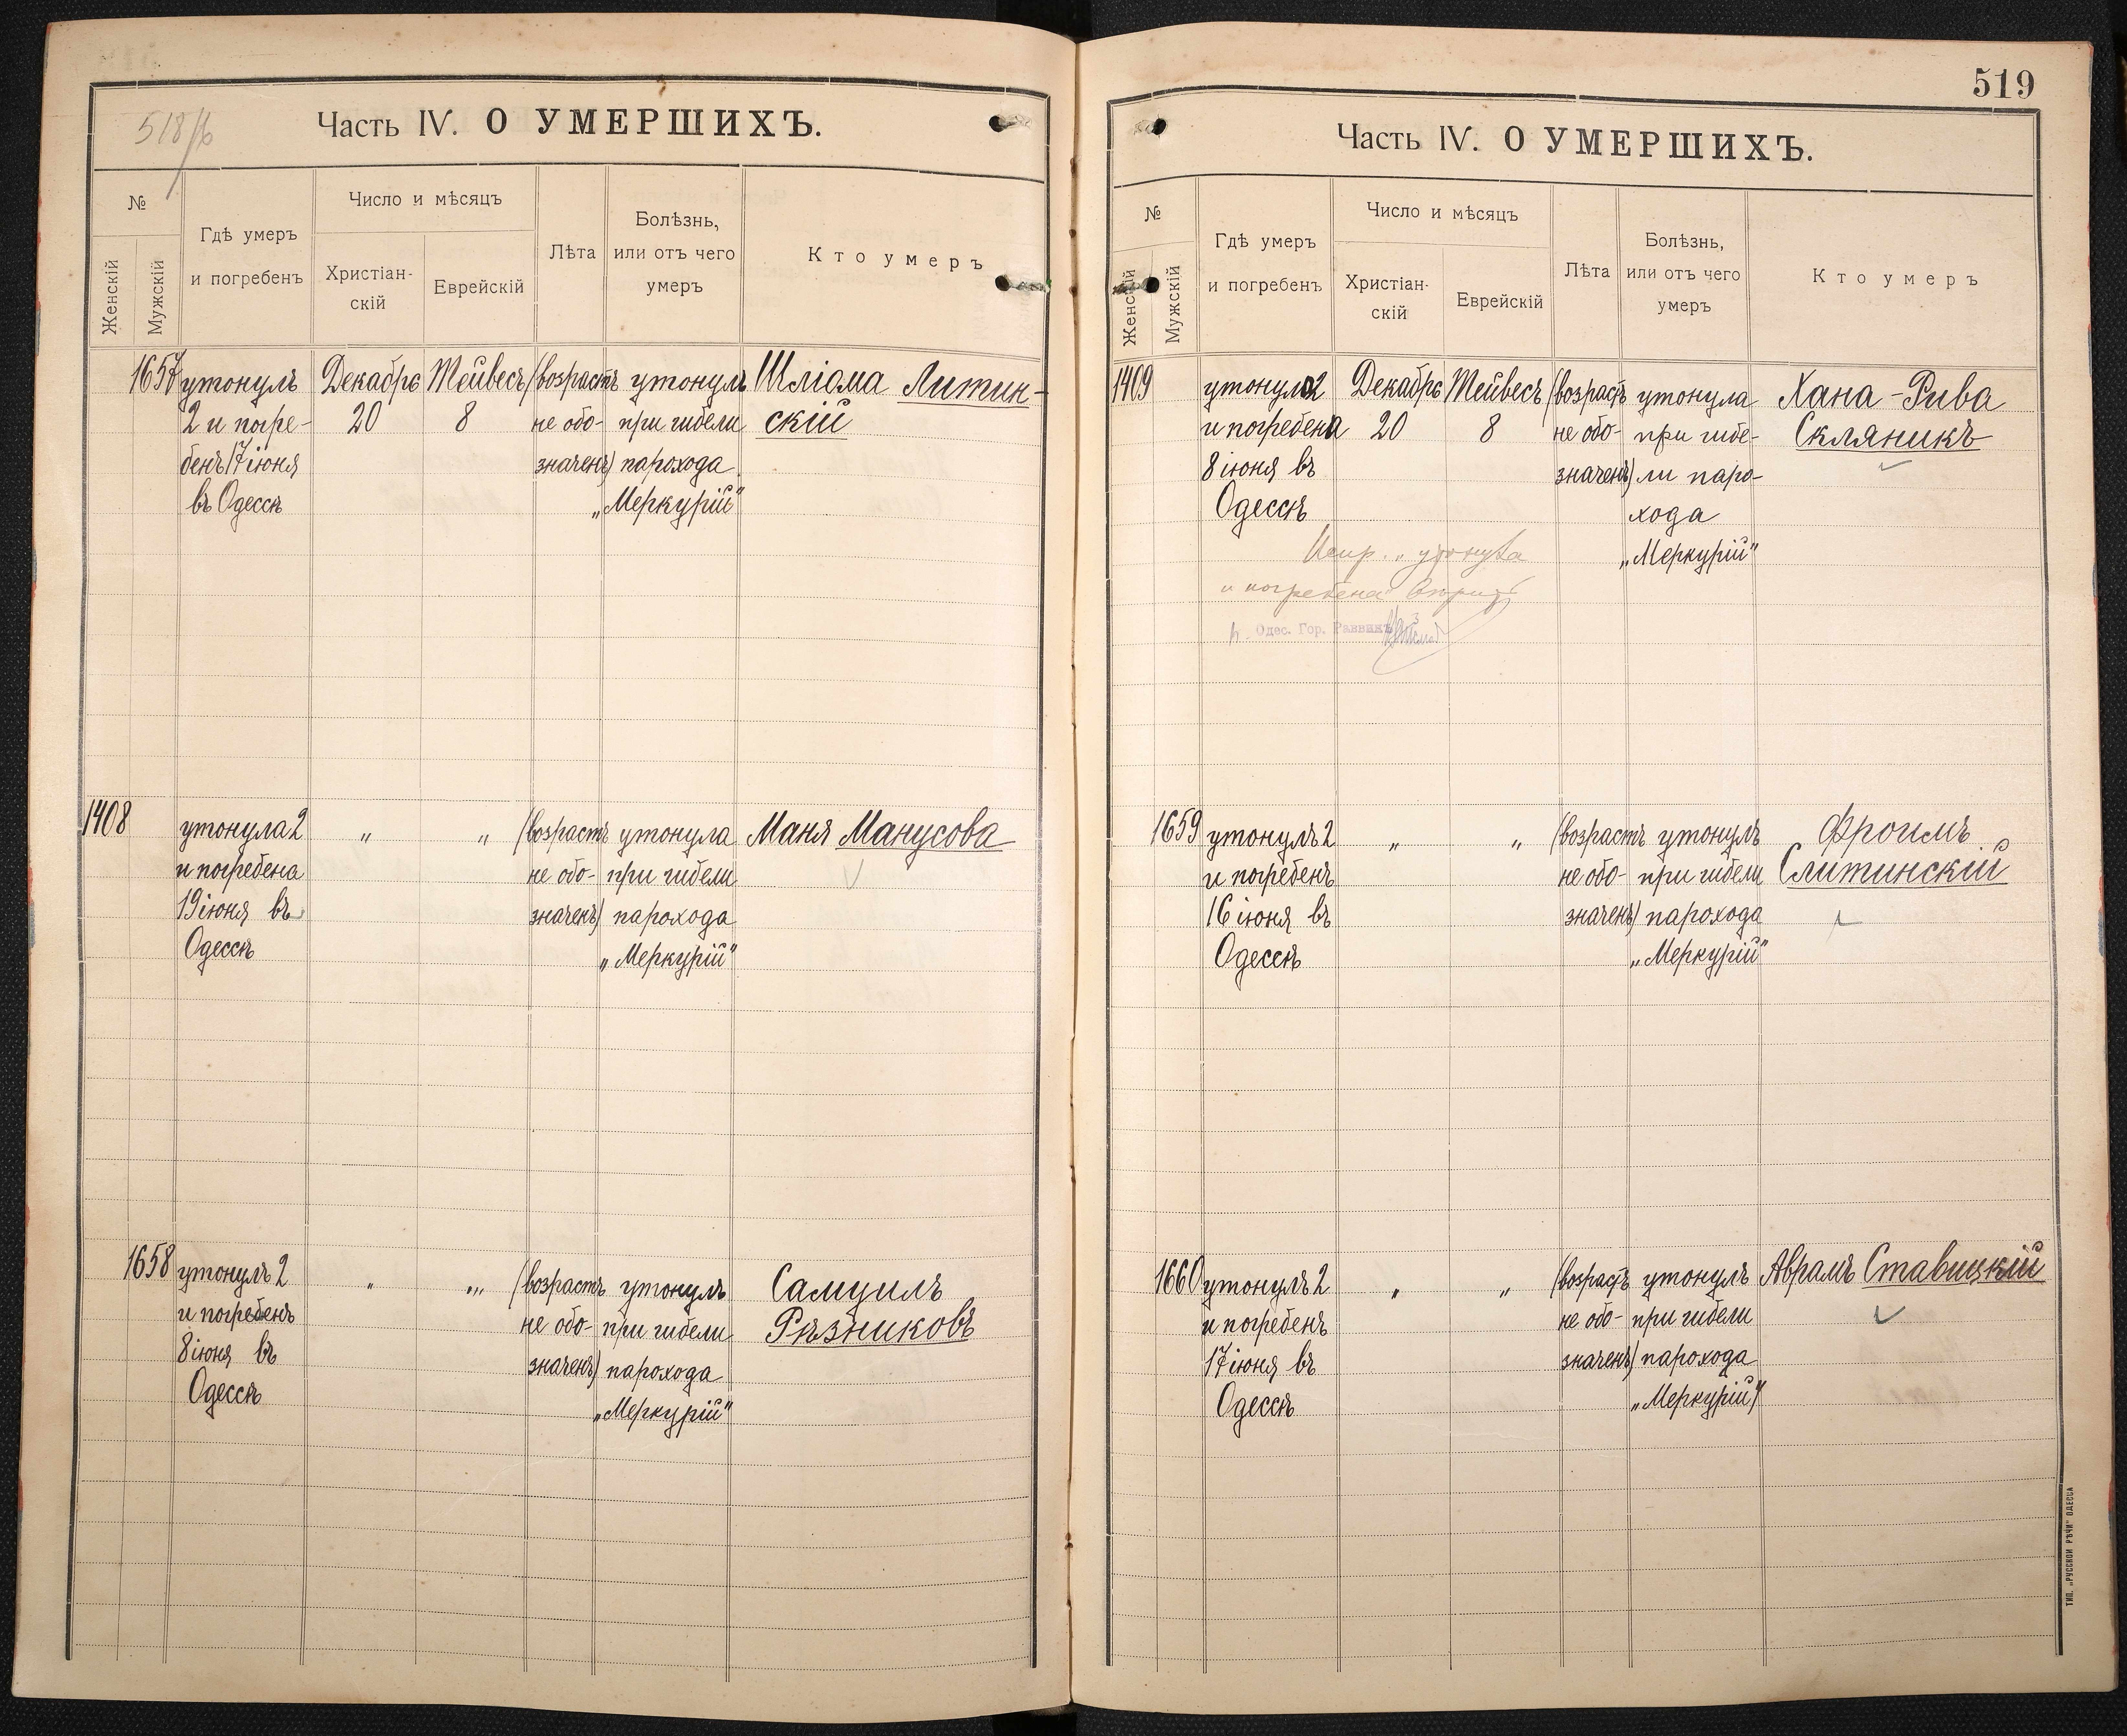 518/б
Часть IV. О УМЕРШИХЪ.
№
Женскій
Мужскій
Гдѣ умеръ
и погребенъ
Число и мѣсяцъ
Христіан-
скій
Еврейскій
Лѣта
Болѣзнь,
или отъ чего
умеръ
Кто умеръ
1657 утонулъ Декабрь Тейвесъ (возрастъ утонулъ Шліома Литин-
2 и погре- 20 8 не обо- при гибели скій
бенъ 17 іюня значенъ) парохода
въ Одессѣ „Меркурій“
1408 утонула 2 „ „ (возрастъ утонула Маня Манусова
и погребена не обо- при гибели
19 іюня въ значенъ) парохода
Одессѣ „Меркурій“
1658 утонулъ 2 „ „ (возрастъ утонулъ Самуилъ
и погребенъ не обо- при гибели Рѣзниковъ
8 іюня въ значенъ) парохода
Одессѣ „Меркурій“
519
Часть IV. О УМЕРШИХЪ.
№
Женскій
Мужскій
Гдѣ умеръ
и погребенъ
Число и мѣсяцъ
Христіан-
скій
Еврейскій
Лѣта
Болѣзнь,
или отъ чего
умеръ
Кто умеръ
1409 утонула 2 Декабрь Тейвесъ (возрастъ утонула Хана-Рива
и погребена 20 8 не обо- при гибе- Скляникъ
8 іюня въ значенъ) ли паро-
Одессѣ хода
„Меркурій“
Испр. „утонула
и погребена“
Одес. Гор. Раввинъ
1659 утонулъ 2 „ „ (возрастъ утонулъ Фроимъ
и погребенъ не обо- при гибели Слитинскій
16 іюня въ значенъ) парохода
Одессѣ „Меркурій“
1660 утонулъ 2 „ „ (возрастъ утонулъ Абрамъ Ставицкій
и погребенъ не обо- при гибели
17 іюня въ значенъ) парохода
Одессѣ „Меркурій“
ТИП. „РУССКОЙ РѢЧИ“ ОДЕССА